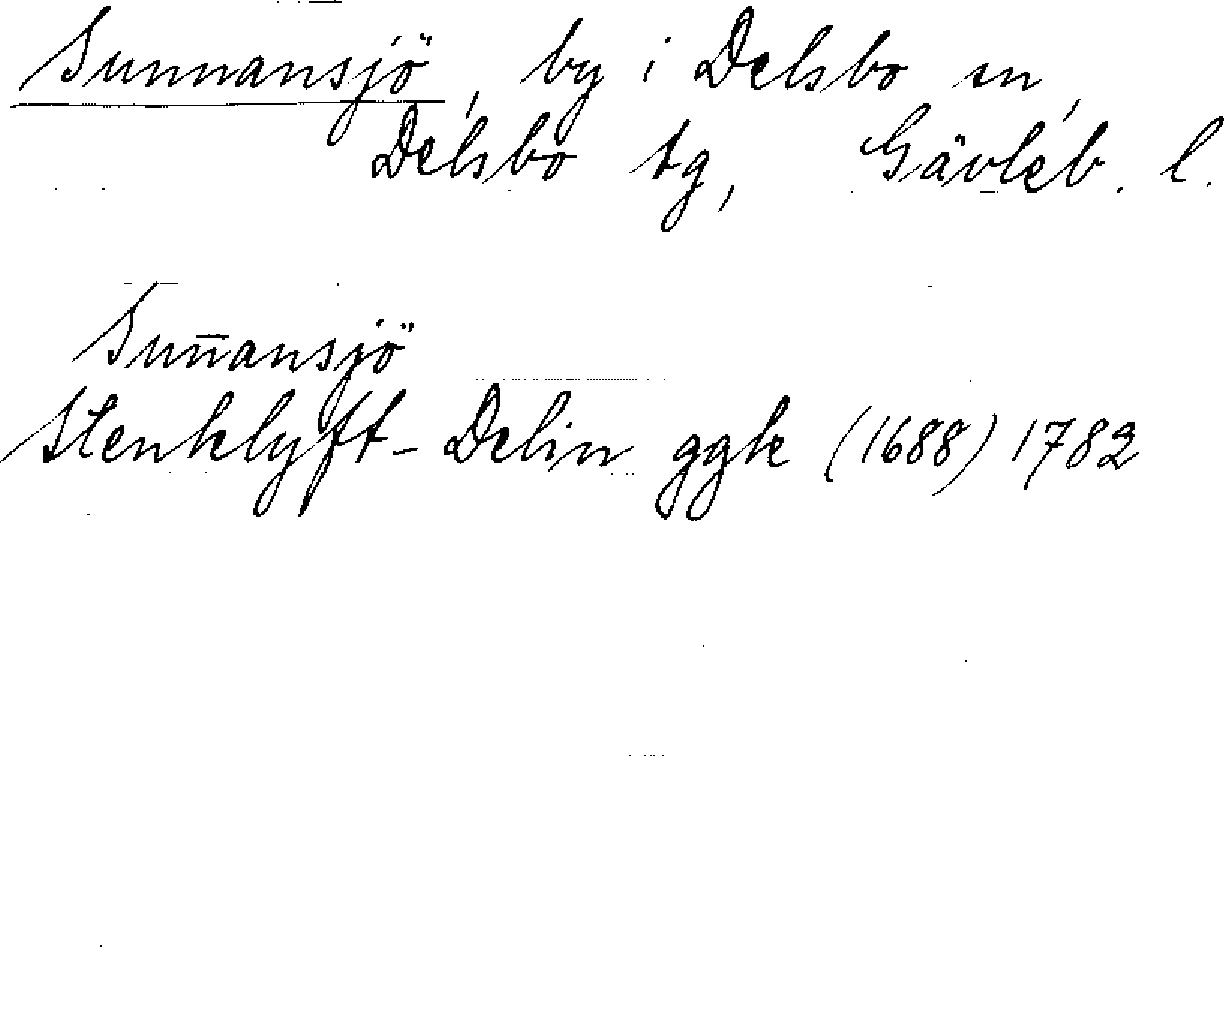 Sunnansjö, by i Delsbo sn,
Delsbo tg, Gävleb. l.
Sun̄ansjö
Stenklyft- Delin ggk (1688) 1782